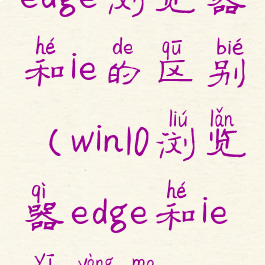 edge浏览器
hé de qū bié
和ie的区别
liú lǎn
(win10浏览
qì hé
器edge和ie